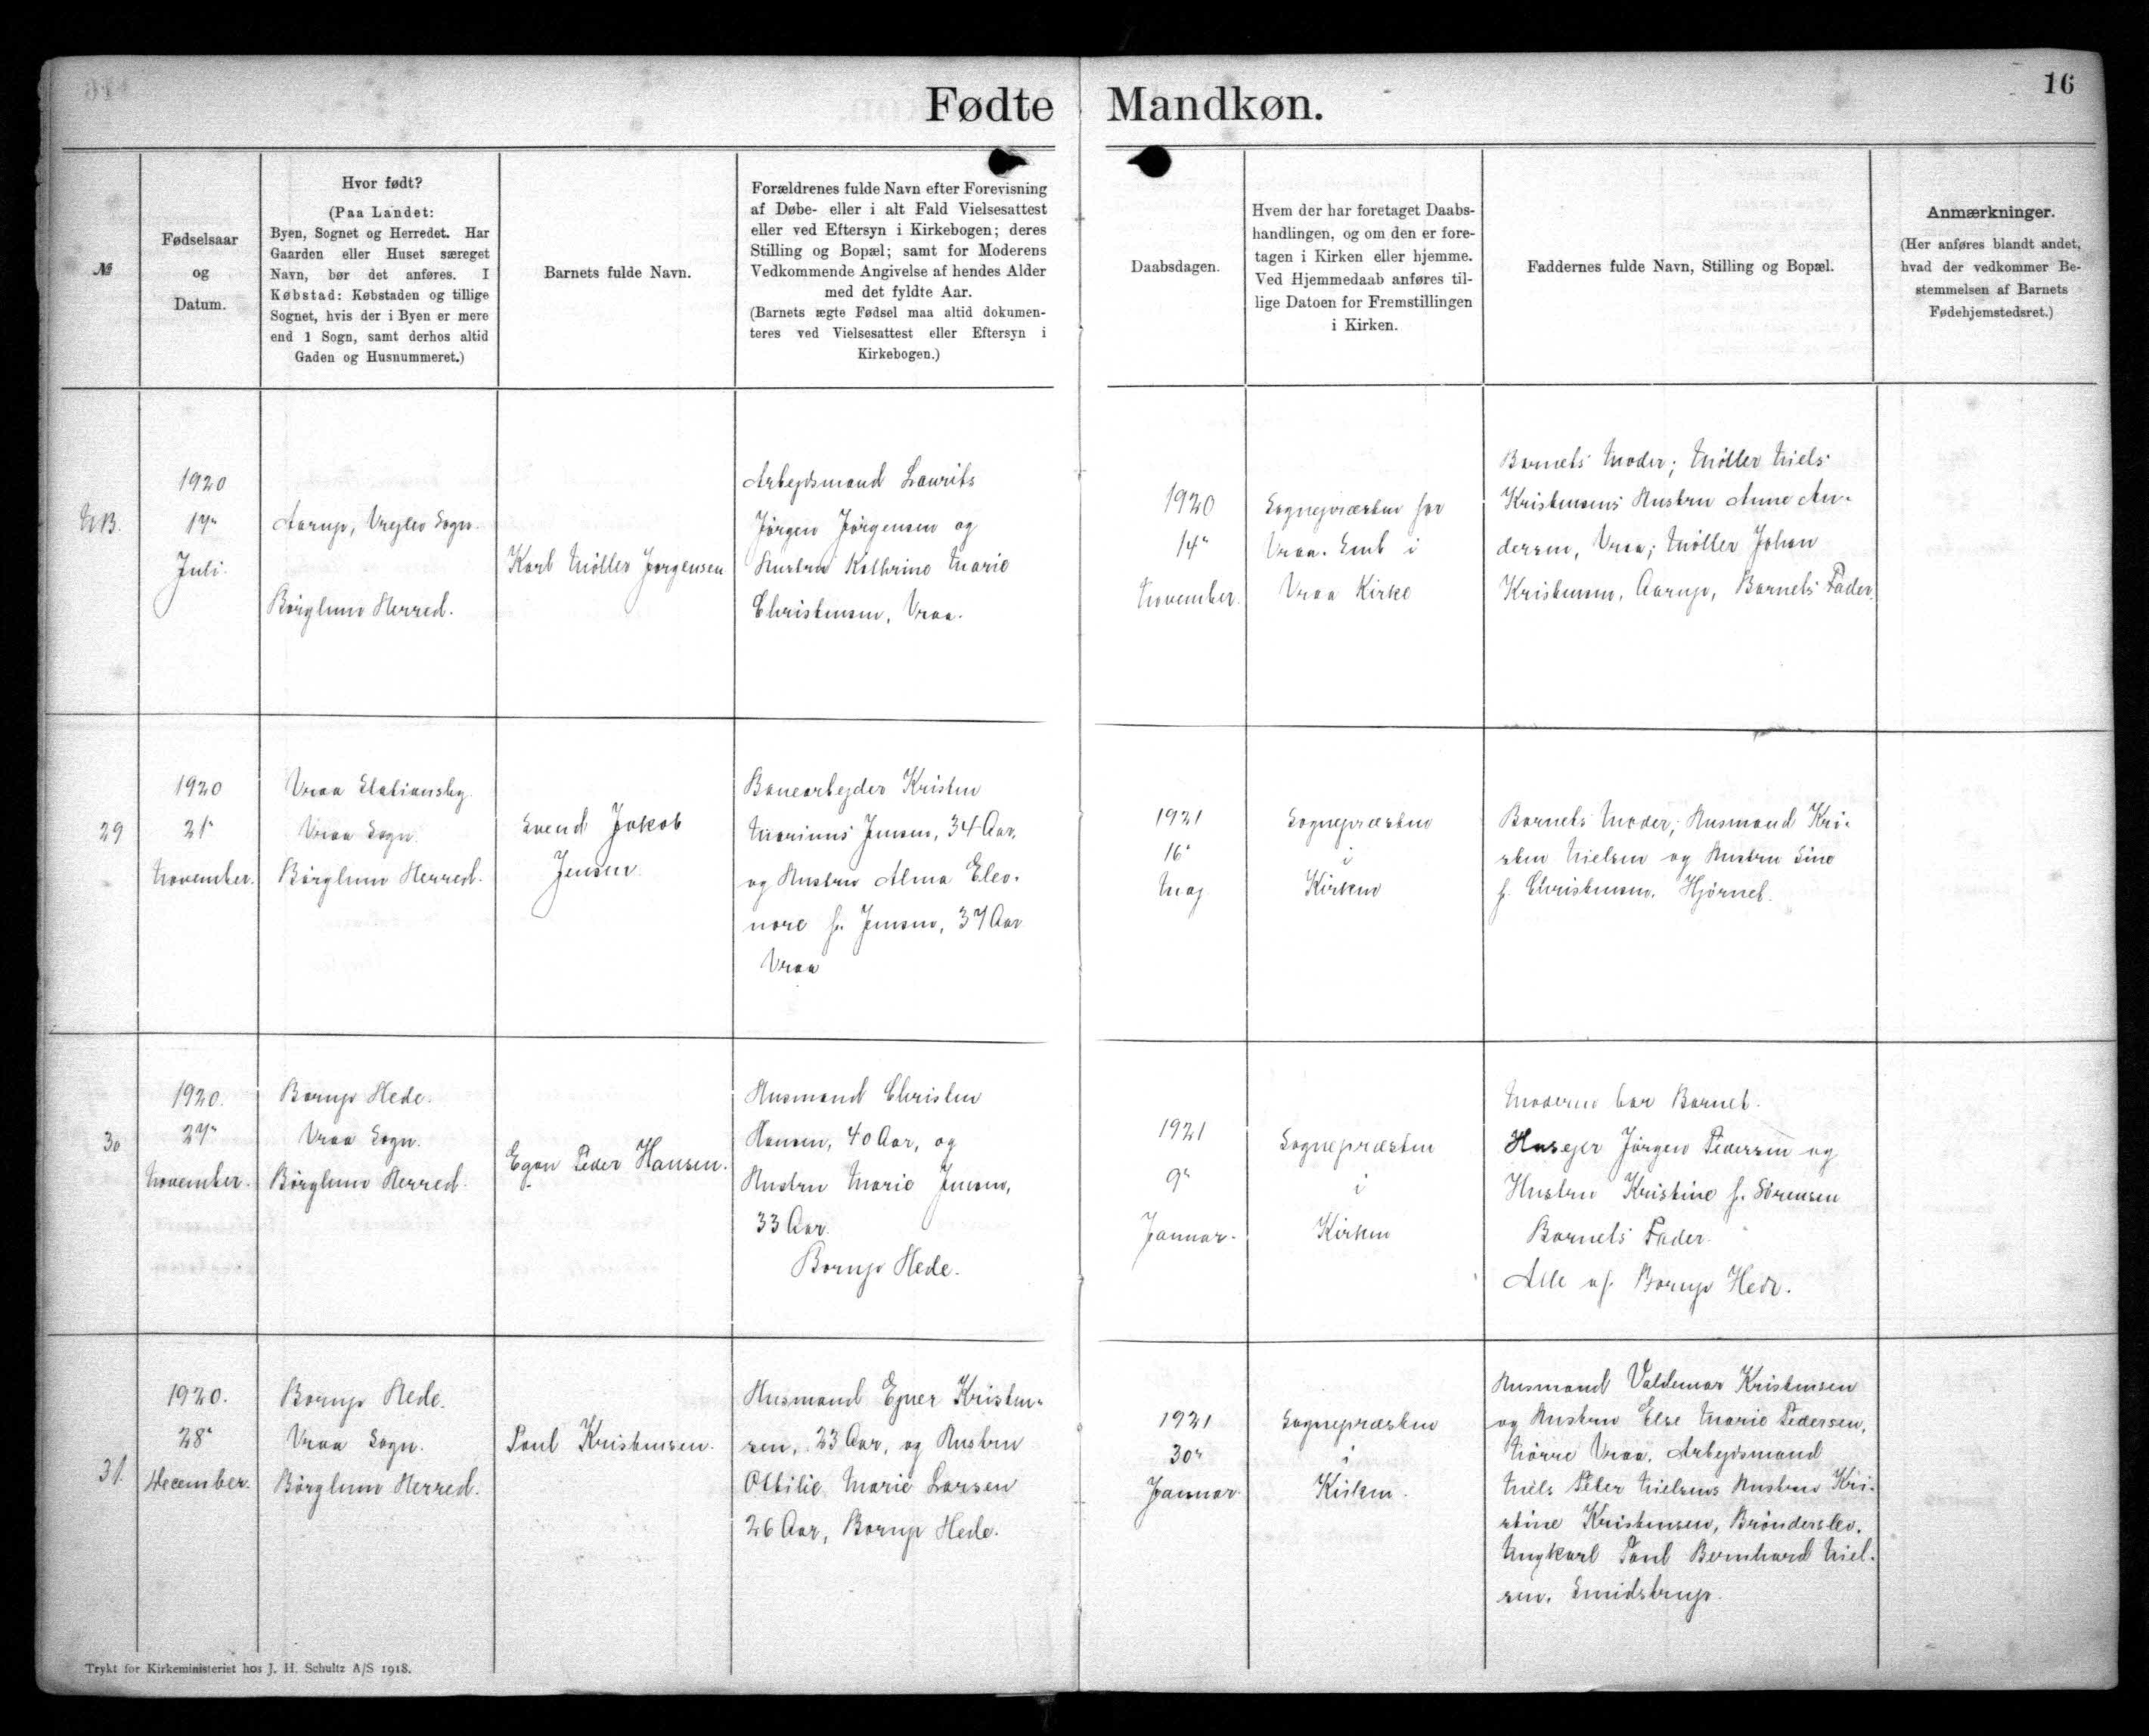 16
Fødte Mandkøn.
№
Fødselsaar
og
Datum.
Hvor født?
(Paa Landet:
Byen, Sognet og Herredet. Har
Gaarden eller Huset særeget
Navn, bør det anføres. I
Købstad: Købstaden og tillige
Sognet, hvis der i Byen er mere
end 1 Sogn, samt derhos altid
Gaden og Husnummeret.)
Barnets fulde Navn.
Forældrenes fulde Navn efter Forevisning
af Døbe- eller i alt Fald Vielsesattest
eller ved Eftersyn i Kirkebogen; deres
Stilling og Bopæl; samt for Moderens
Vedkommende Angivelse af hendes Alder
med det fyldte Aar.
(Barnets ægte Fødsel maa altid dokumen-
teres ved Vielsesattest eller Eftersyn i
Kirkebogen.)
Daabsdagen.
Hvem der har foretaget Daabs-
handlingen, og om den er fore-
tagen i Kirken eller hjemme.
Ved Hjemmedaab anføres til-
lige Datoen for Fremstillingen
i Kirken.
Faddernes fulde Navn, Stilling og Bopæl.
Anmærkninger.
(Her anføres blandt andet,
hvad der vedkommer Be-
stemmelsen af Barnets
Fødehjemstedsret.)
NB.
1920
17"
Juli.
Aarup, Vrejlev Sogn.
Børglum Herred.
Karl Møller Jørgensen
Arbejdsmand Laurits
Jørgen Jørgensen og
Hustru Kathrine Marie
Christensen, Vraa.
1920
14"
November.
Sognepræsten for
Vraa. Emb i
Vraa Kirke
Barnets Moder; Møller Niels
Kristensens Hustru Anne An-
dersen, Vraa; Møller Johan
Kristensen, Aarup, Barnets Fader.
29
1920
21"
November.
Vraa Stationsby.
Vraa Sogn.
Børglum Herred.
Svend Jakob
Jensen.
Banearbejder Kristen
Marinus Jensen, 34 Aar,
og Hustru Alma Eleo-
nore f. Jensen, 37 Aar
Vraa
1921
16"
Maj
Sognepræsten
i
Kirken
Barnets Moder; Husmand Kri-
sten Nielsen og Hustru Sine
f. Christensen, Hjørnet.
30
1920.
27"
November.
Borup Hede.
Vraa Sogn.
Børglum Herred.
Egon Peder Hansen.
Husmand Christen
Hansen, 40 Aar, og
Hustru Marie Jensen,
33 Aar.
Borup Hede.
1921
9"
Januar.
Sognepræsten
i
Kirken
Moderen bar Barnet.
Husejer Jørgen Pedersen og
Hustru Kristine f. Sørensen
Barnets Fader.
Alle af Borup Hede.
31.
1920.
28"
December.
Borup Hede.
Vraa Sogn.
Børglum Herred.
Poul Kristensen.
Husmand Ejner Kristen-
sen, 23 Aar, og Hustru
Ottilie Marie Larsen
26 Aar, Borup Hede.
1921
30"
Januar.
Sognepræsten
i
Kirken.
Husmand Valdemar Kristensen
og Hustru Else Marie Pedersen,
Nørre Vraa. Arbejdsmand
Niels Peter Nielsens Hustru Kri-
stine Kristensen, Brønderslev.
Ungkarl Poul Bernhard Niel-
sen. Smidstrup.
Trykt for Kirkeministeriet hos J. H. Schultz A/S 1918.